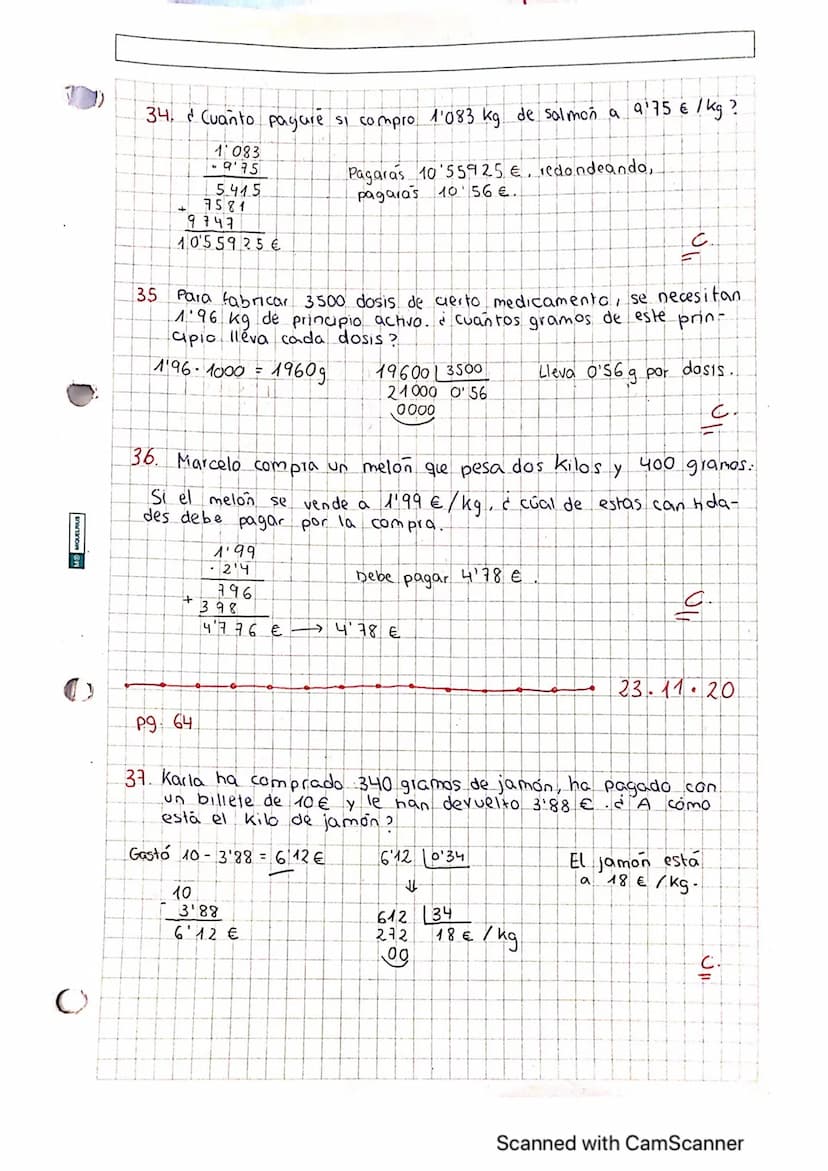 34. ¿ Cuánto pagaré si compro 1'083 kg de salmón a 9'75 € / kg ?
1'083
· 9'75
5415
+ 7581
9747
10'55925 €
Pagarás 10'55925 €, redondeando,
pagarás 10'56 €.
C.
35 Para fabricar 3500 dosis de cierto medicamento, se necesitan
1'96 kg de principio activo. ¿ cuántos gramos de este prin-
cipio lleva cada dosis ?
1'96 · 1000 = 1960g
19600 | 3500
21000 0'56
0000
Lleva 0'56 g por dosis.
C.
36. Marcelo compra un melón que pesa dos kilos y 400 gramos.
Si el melón se vende a 1'99 € / kg, ¿ cúal de estas cantida-
des debe pagar por la compra.
1'99
· 2'4
796
+ 398
4'776 € → 4'78 €
Debe pagar 4'78 €.
C.
MIQUELRIUS
23.11.20
pg. 64
37. Karla ha comprado 340 gramos de jamón, ha pagado con
un billete de 10 € y le han devuelto 3'88 €. ¿ A cómo
está el kilo de jamón ?
Gastó 10 - 3'88 = 6'12 €
10
- 3'88
6'12 €
6'12 | 0'34
⇓
612 | 34
272 18 € / kg
00
El jamón está
a 18 € / kg.
C.
Scanned with CamScanner